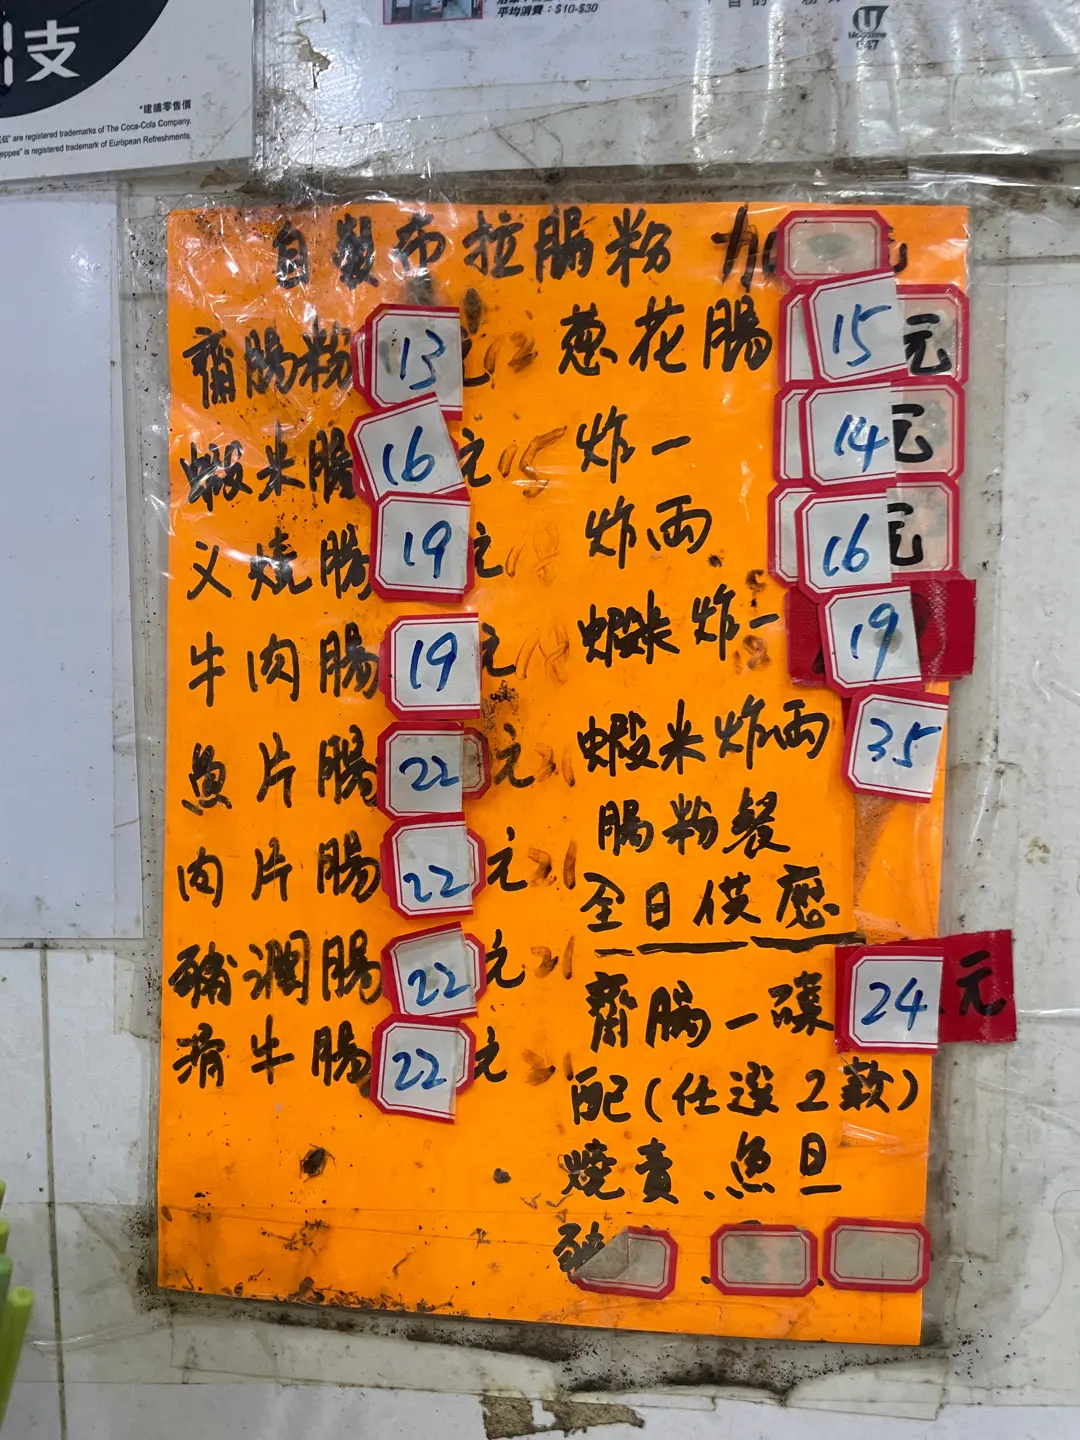 支
*建議零售價
are registered trademarks of The Coca-Cola Company.
is registered trademark of European Refreshments.
平均消費：$10-$30
U
Magazine
647
自製布拉腸粉 加
齋腸粉 13 元 12
蝦米腸 16 元 15
叉燒腸 19 元 18
牛肉腸 19 元 18
魚片腸 22 元 21
肉片腸 22 元 21
豬潤腸 22 元 21
滑牛腸 22 元 21
葱花腸 15 元
炸一 14 元
炸両 16 元
蝦米炸一 19
18
蝦米炸両 35
腸粉餐
全日供應
齋腸一碟 24 元
配(任選2款)
燒賣、魚旦
豬